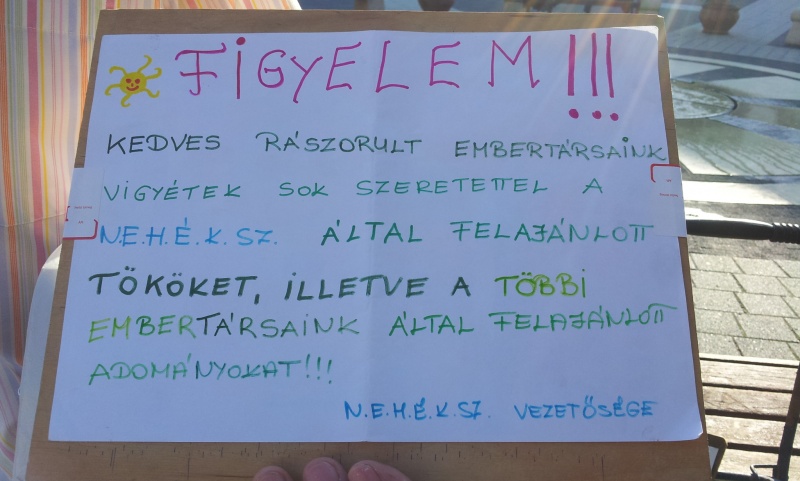 FIGYELEM!!!
KEDVES RÁSZORULT EMBERTÁRSAINK
VIGYÉTEK SOK SZERETETTEL A
N.E.H.É.K.SZ. ÁLTAL FELAJÁNLOTT
TÖKÖKET, ILLETVE A TÖBBI
EMBERTÁRSAINK ÁLTAL FELAJÁNLOTT
ADOMÁNYOKAT!!!
N.E.H.É.K.SZ. VEZETŐSÉGE